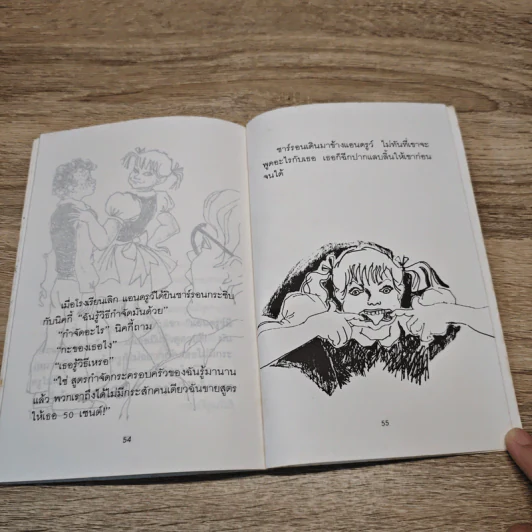 เมื่อโรงเรียนเลิก แอนดรูว์ได้ยินชาร์รอนกระซิบ
กับนิคกี้ "ฉันรู้วิธีกำจัดมันด้วย"
"กำจัดอะไร" นิคกี้ถาม
"กะของเธอไง"
"เธอรู้วิธีเหรอ"
"ใช่ สูตรกำจัดกระครอบครัวของฉันรู้มานาน
แล้ว พวกเราถึงได้ไม่มีกระสักคนเดียวฉันขายสูตร
ให้เธอ 50 เซนต์!"
54
ชาร์รอนเดินมาข้างแอนดรูว์ ไม่ทันที่เขาจะ
พูดอะไรกับเธอ เธอก็ฉีกปากแลบลิ้นให้เขาก่อน
จนได้
55